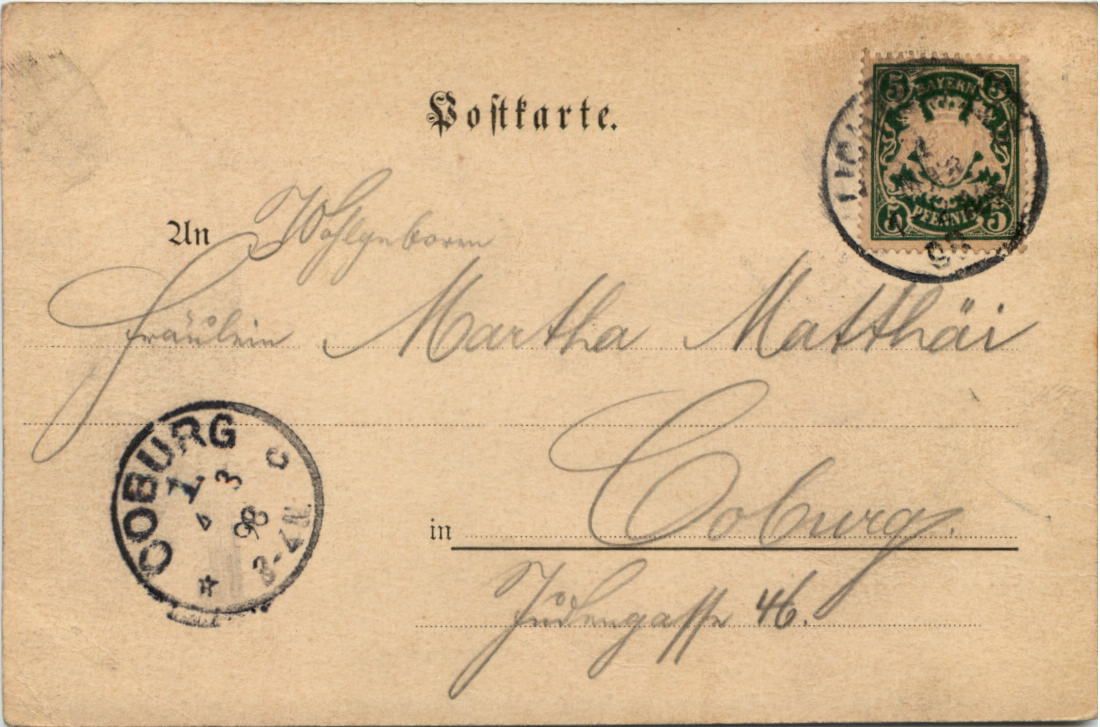 Postkarte.
5 BAYERN 5
5 PFENNIG 5
An Wohlgeboren
Fräulein Martha Matthäi
in Coburg.
Judengasse 46.
COBURG
3
98